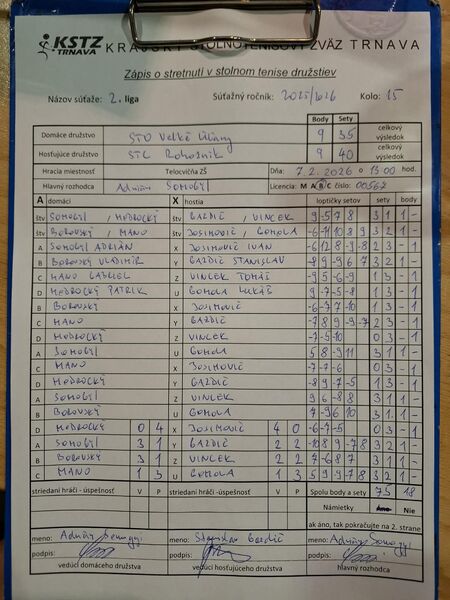 KSTZ TRNAVA KRAJSKÝ STOLNOTENISOVÝ ZVÄZ TRNAVA
Zápis o stretnutí v stolnom tenise družstiev
Názov súťaže: 2. liga Súťažný ročník: 2025/2026 Kolo: 15
Body Sety
Domáce družstvo STO Veľké Úľany 9 35 celkový výsledok
Hosťujúce družstvo STC Rohožník 9 40 celkový výsledok
Hracia miestnosť Telocvičňa ZŠ Dňa: 7.2.2026 o 15:00 hod.
Hlavný rozhodca Adrián Somogyi Licencia: M A B C číslo: 00567
A domáci X hostia loptičky setov sety body
štv SOMOGYI / MODROCKÝ štv GAZDIČ / VINCEK 9 -5 7 8 3 1 1 -
štv BOROVSKÝ / MANO štv JOSIMOVIČ / GOMOLA
A SOMOGYI ADRIÁN X JOSIMOVIČ IVAN -6 12 8 -9 -8 2 3 - 1
B BOROVSKÝ VLADIMÍR Y GAZDIČ STANISLAV -8 9 -9 6 7 3 2 1 -
C MANO GABRIEL Z VINCEK TOMÁŠ -9 5 -6 -9 1 3 - 1
D MODROCKÝ PATRIK U GOMOLA LUKÁŠ 9 -7 -5 -8 1 3 - 1
B BOROVSKÝ X JOSIMOVIČ -6 -7 7 -10 1 3 - 1
C MANO Y GAZDIČ -7 8 9 -9 -7 2 3 - 1
D MODROCKÝ Z VINCEK -7 -5 -10 0 3 - 1
A SOMOGYI U GOMOLA 5 8 -9 11 3 1 1 -
C MANO X JOSIMOVIČ -7 -7 -6 0 3 - 1
D MODROCKÝ Y GAZDIČ -8 9 -7 -5 1 3 - 1
A SOMOGYI Z VINCEK 9 6 -8 8 3 1 1 -
B BOROVSKÝ U GOMOLA 7 -9 6 10 3 1 1 -
D MODROCKÝ 0 4 X JOSIMOVIČ 4 0 -6 -7 -5 0 3 - 1
A SOMOGYI 3 1 Y GAZDIČ 2 2 -10 8 9 -7 8 3 2 1 -
B BOROVSKÝ 3 1 Z VINCEK 2 2 7 -6 8 7 3 1 1 -
C MANO 1 3 U GOMOLA 1 3 5 9 -9 -7 8 3 2 1 -
striedaní hráči - úspešnosť V P striedaní hráči - úspešnosť V P Spolu body a sety 75 18
Námietky Áno Nie
ak áno, tak pokračujte na 2. strane
meno: Adrián Somogyi meno: Stanislav Gazdič meno: Adrián Somogyi
podpis: podpis: podpis:
vedúci domáceho družstva vedúci hosťujúceho družstva hlavný rozhodca